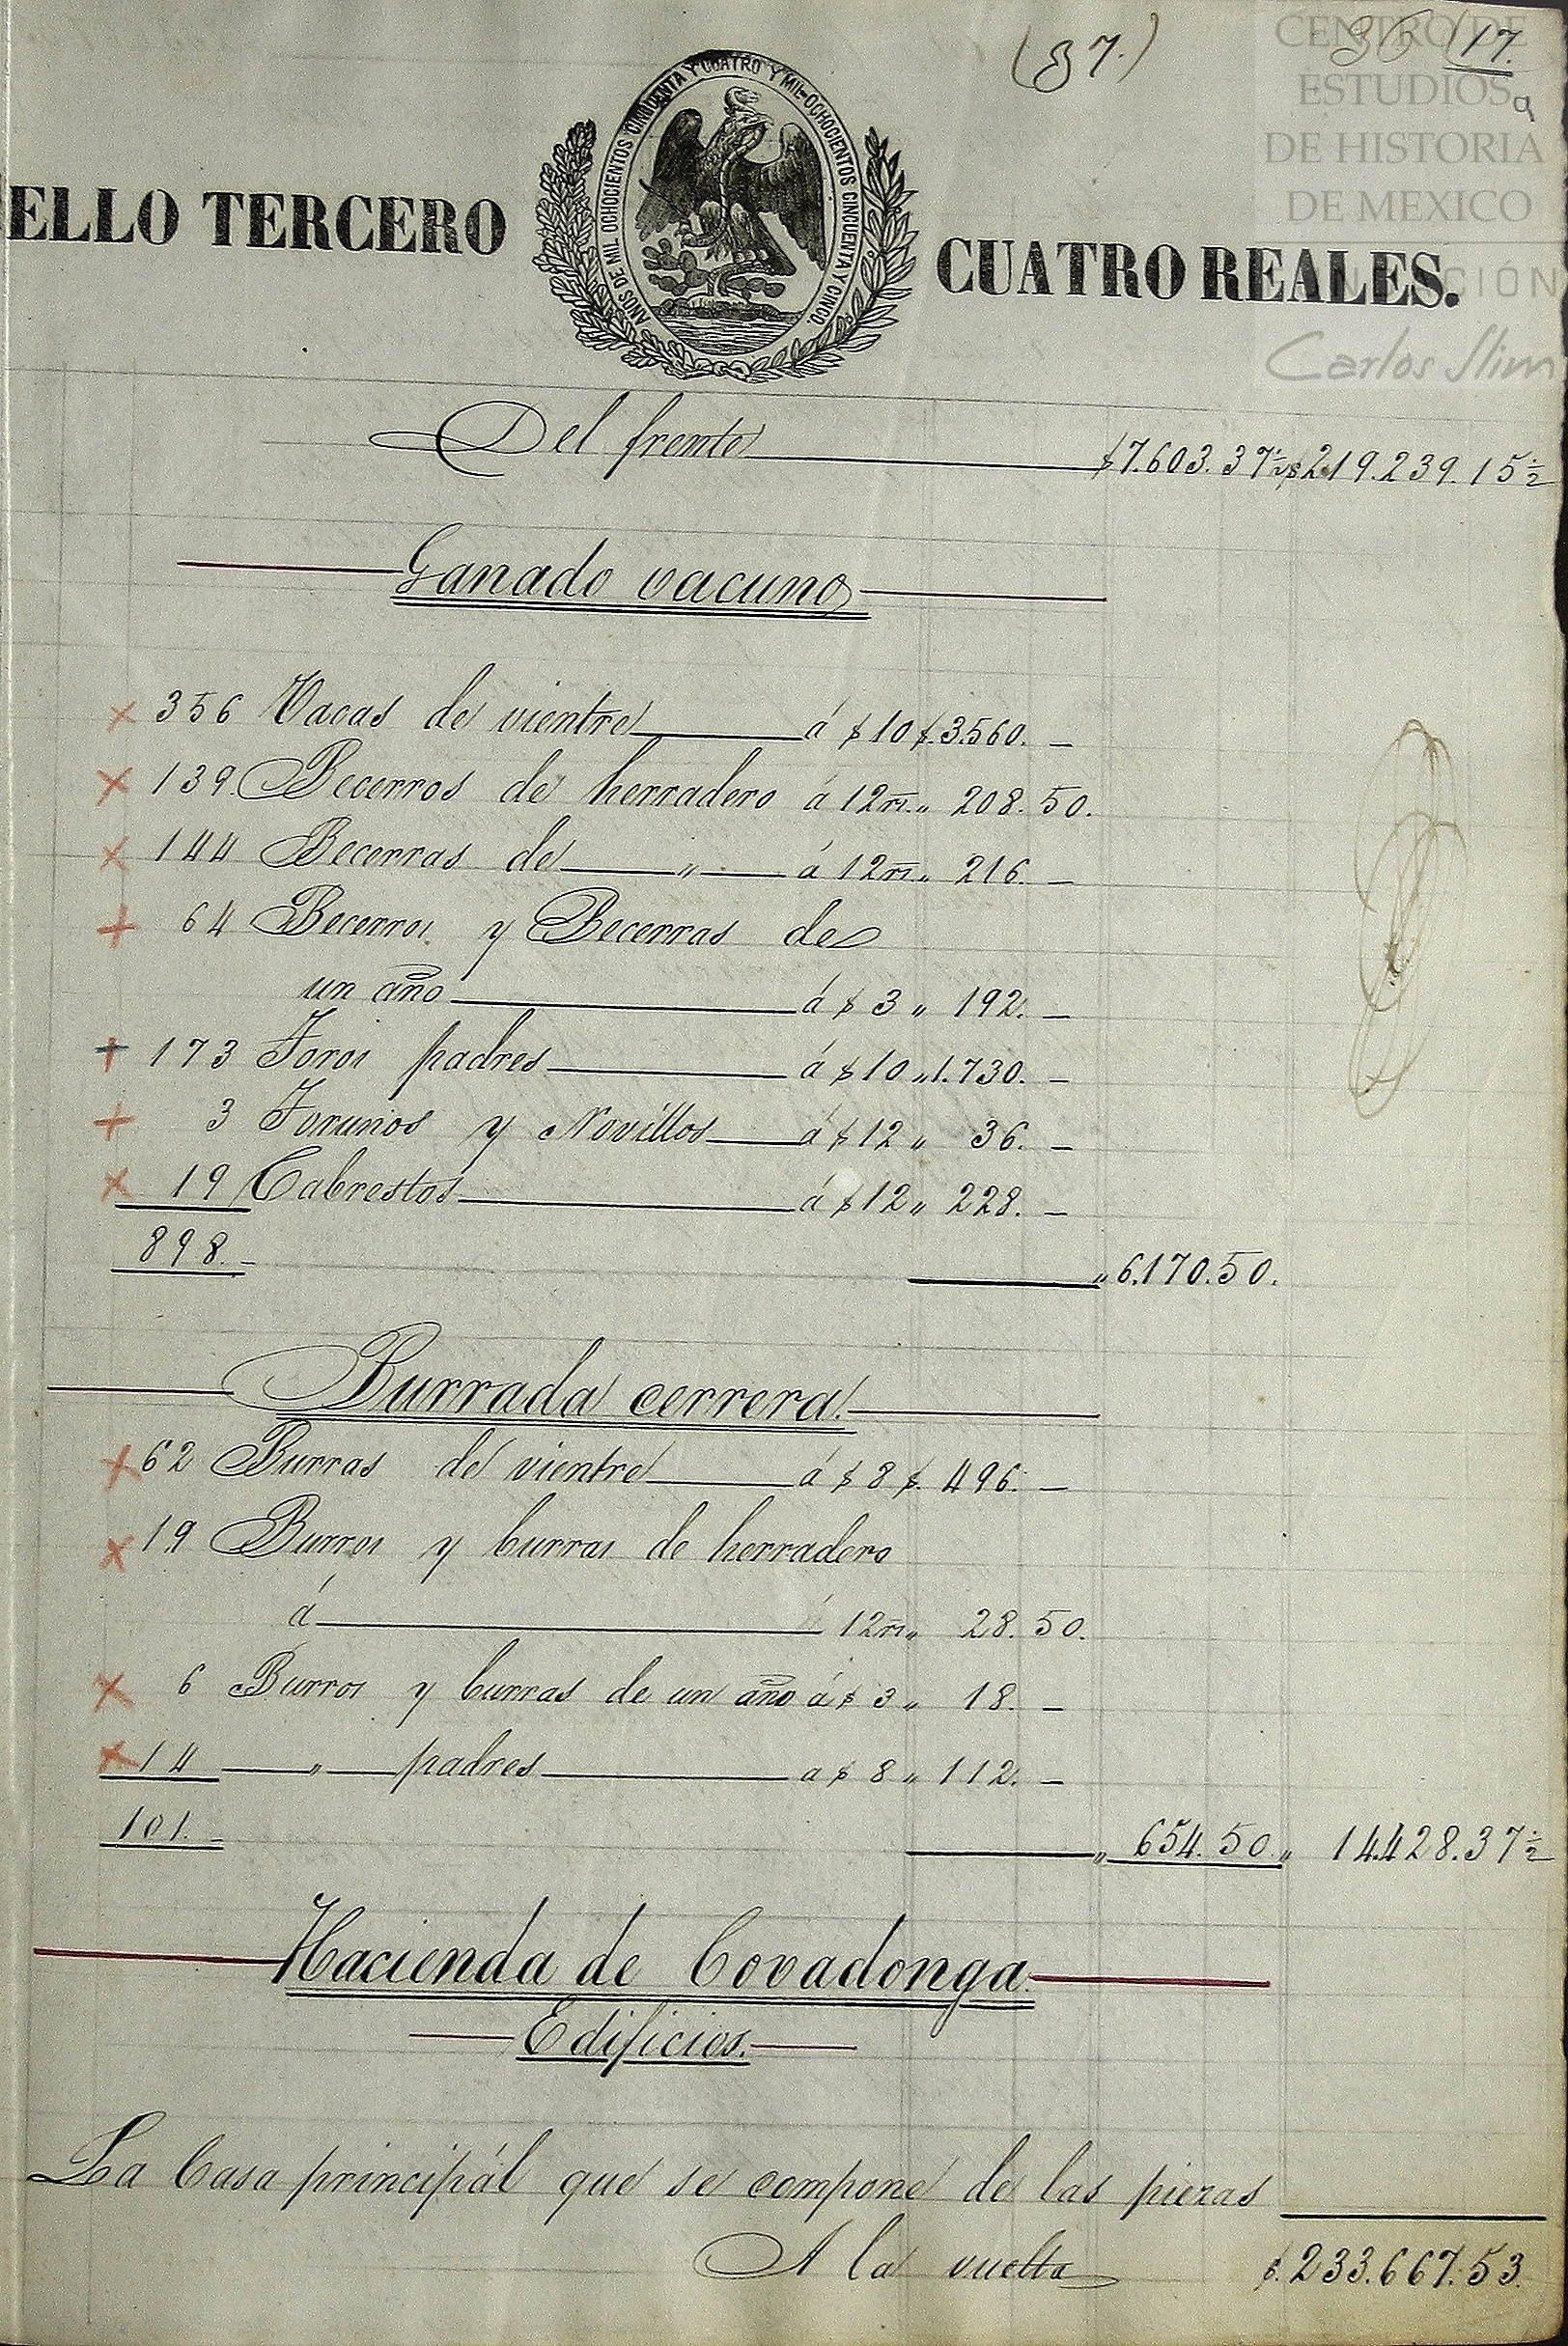 (37.) 36 17.
a
CENTRO DE
ESTUDIOS
DE HISTORIA
DE MEXICO
Carlos Slim
ELLO TERCERO CUATRO REALES.
AÑOS DE MIL OCHOCIENTOS CINCUENTA Y CUATRO Y MIL OCHOCIENTOS CINCUENTA Y CINCO.
Del frente $7.603.37½ $219.239.15½
Ganado vacuno
356 Vacas de vientre á $10 $.3.560. —
139. Becerros de herradero á 12 rs. " 208.50.
144 Becerras de " á 12 rs. " 216. —
64 Becerros y Becerras de
un año á $3 " 192. —
173 Toros padres á $10 " 1.730. —
3 Torunos y Novillos á $12 " 36. —
19 Cabrestos á $12 " 228. —
898. — " 6.170.50.
Burrada cerrera.
62 Burras de vientre á $8 $. 496. —
19 Burros y burras de herradero
á 12 rs " 28.50.
6 Burros y burras de un año á $3 " 18. —
14 " padres a $8 " 112. —
101. — " 654.50 " 14.428.37½
Hacienda de Covadonga.
Edificios.
La Casa principál que se compone de las piezas
A la vuelta $.233.667.53.